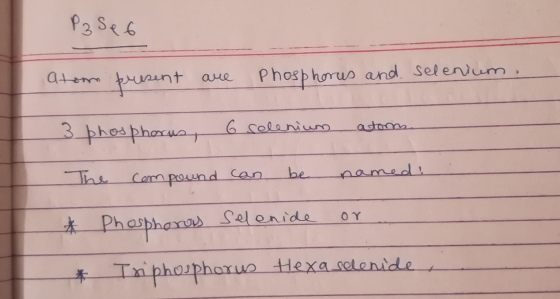 P3Se6
atom present are Phosphorus and selenium.
3 phosphorus, 6 selenium atom.
The compound can be named:
* Phosphorus Selenide or
* Triphosphorus Hexaselenide.